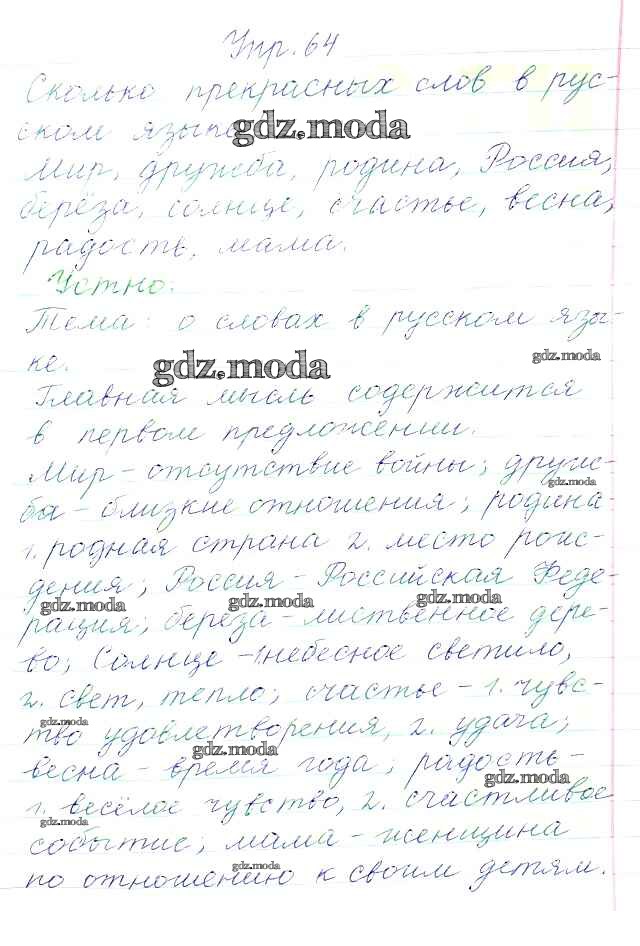 Упр. 64
Сколько прекрасных слов в рус-
ском языке
gdz.moda
Мир, дружба, родина, Россия,
берёза, солнце, счастье, весна,
радость, мама.
Устно:
Тема: о словах в русском язы-
ке.
gdz.moda
gdz.moda
Главная мысль содержится
в первом предложении.
Мир - отсутствие войны; друж-
gdz.moda
ба - близкие отношения; родина -
1. родная страна 2. место рож-
дения; Россия - Российская Феде-
gdz.moda
gdz.moda
gdz.moda
рация; береза - лиственное дере-
во; Солнце - 1. небесное светило,
2. свет, тепло; счастье - 1. чувс-
gdz.moda
тво удовлетворения, 2. удача;
gdz.moda
весна - время года; радость -
gdz.moda
1. весёлое чувство, 2. счастливое
gdz.moda
событие; мама - женщина
gdz.moda
по отношению к своим детям.